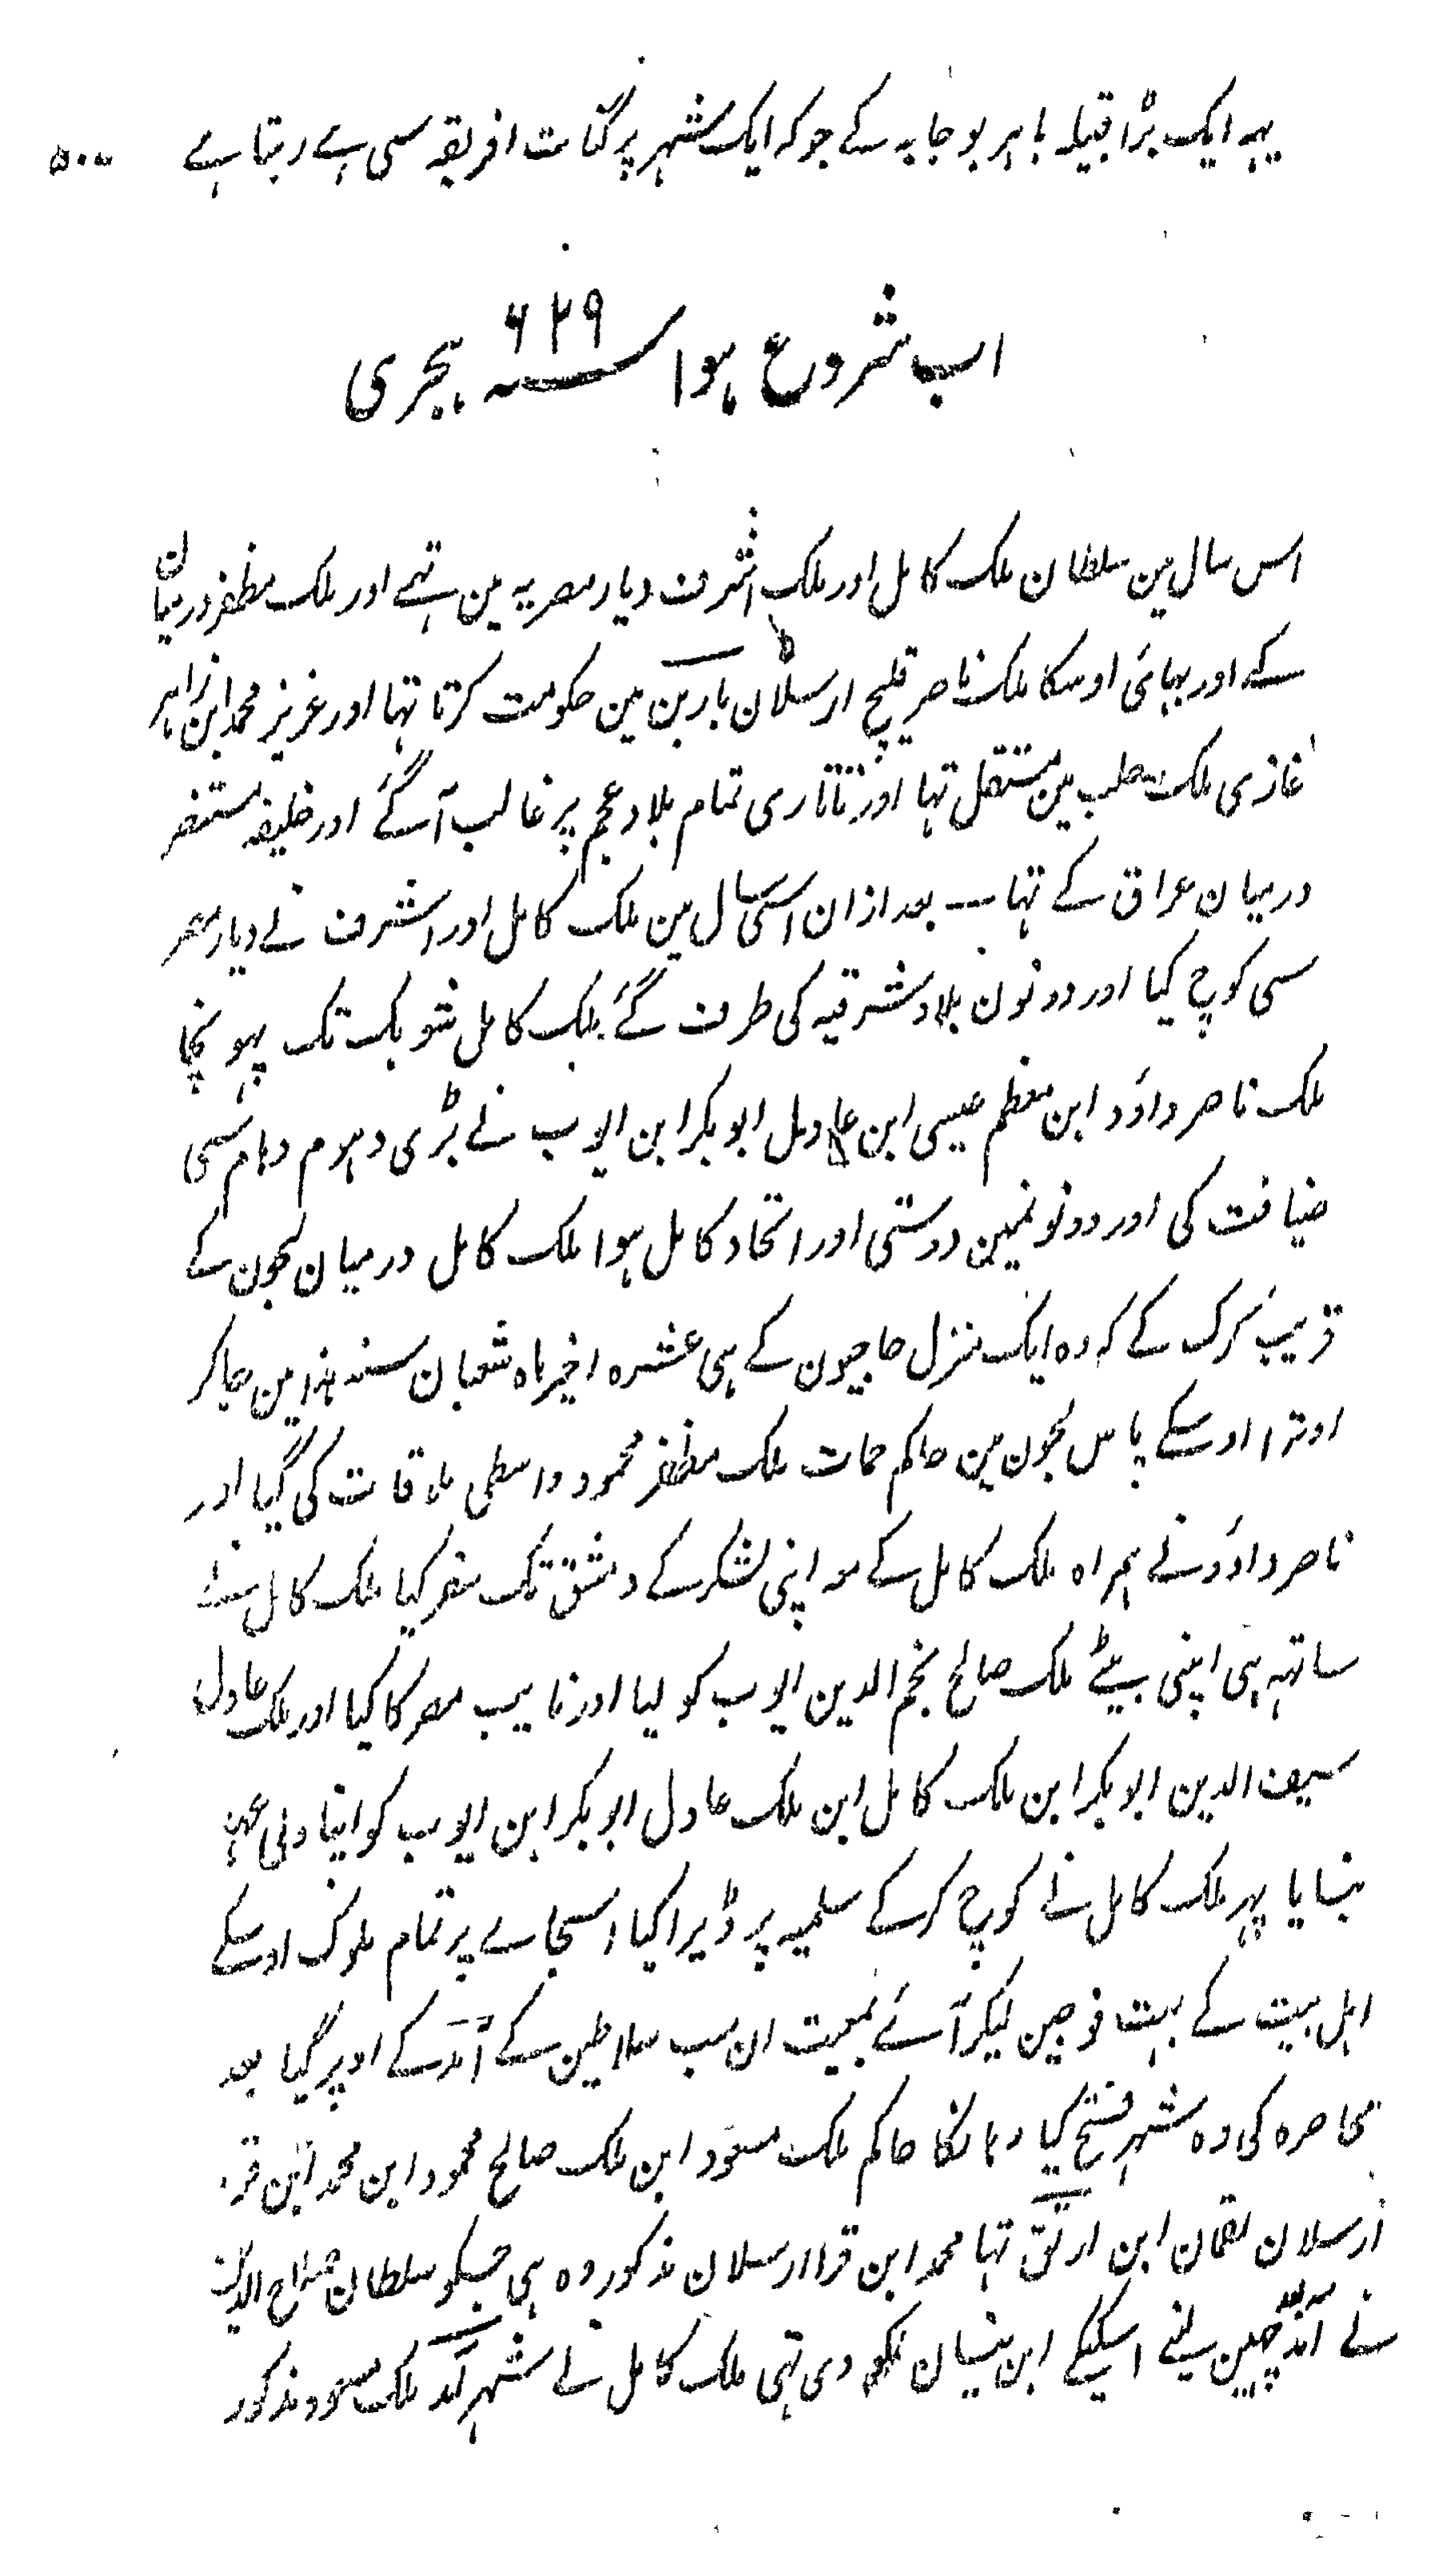 یہہ ایک بڑا قبیلہ باہر بوجایہ کے جو کہ ایک شہر پرگنات افریقہ سی ہے رہتا ہے ۵۰۰
اب شروع ہوا سنہ ۶۲۹ ہجری
اس سال مین سلطان ملک کامل اور ملک اشرف دیار مصریہ مین تہے اور ملک مظفر درمیان
کے اور بہائی اوسکا ملک ناصر قلیج ارسلان بارین مین حکومت کرتا تہا اور عزیز محمد ابن زاہر
غازی ملک حلب مین مستقل تہا اور تاتاری تمام بلاد عجم پر غالب آ گئے اور خلیفہ مستنصر
درمیان عراق کے تہا ۔۔ بعد ازان اسی سال مین ملک کامل اور اشرف نے دیار مصر
سی کوچ کیا اور دونون بلاد شرقیہ کی طرف گئے ملک کامل شوبک تک پہونچا
ملک ناصر داؤد ابن معظم عیسی ابن عادل ابوبکر ابن ایوب نے بڑی دہوم دہام سی
ضیافت کی اور دونونمین دوستی اور اتحاد کامل ہوا ملک کامل درمیان لجون کے
قریب کرک کے کہ وہ ایک منزل حاجیون کے ہی عشرہ اخیر ماہ شعبان سنہ ہذا مین جا کر
اوترا اوسکے پاس لجون مین حاکم حمات ملک مظفر محمود واسطی ملاقات کی گیا اور
ناصر داؤد نے ہمراہ ملک کامل کے معہ اپنی لشکر کے دمشق تک سفر کیا ملک کامل نے
ساتہہ ہی اپنی بیٹے ملک صالح نجم الدین ایوب کو لیا اور نایب مصر کا کیا اور ملک عادل
سیف الدین ابوبکر ابن ملک کامل ابن ملک عادل ابوبکر ابن ایوب کو اپنا ولی عہد
بنایا پہر ملک کامل نے کوچ کر کے سلمیہ پر ڈیرا کیا اسجاے پر تمام ملوک اوسکے
اہل بیت کے بہت فوجین لیکر آئے بمعیت ان سب سلاطین کے آمد کے اوپر گیا بعد
محاصرہ کی وہ شہر فتح کیا وہانکا حاکم ملک مسعود ابن ملک صالح محمود ابن محمد ابن قرا
ارسلان لقمان ابن ارتق تہا محمد ابن قرا ارسلان مذکور وہ ہی جسکو سلطان صلاح الدین
نے آمد بعد چہین لینے اسکیکے ابن نیسان کو دی تہی ملک کامل نے شہر آمد ملک مسعود مذکور